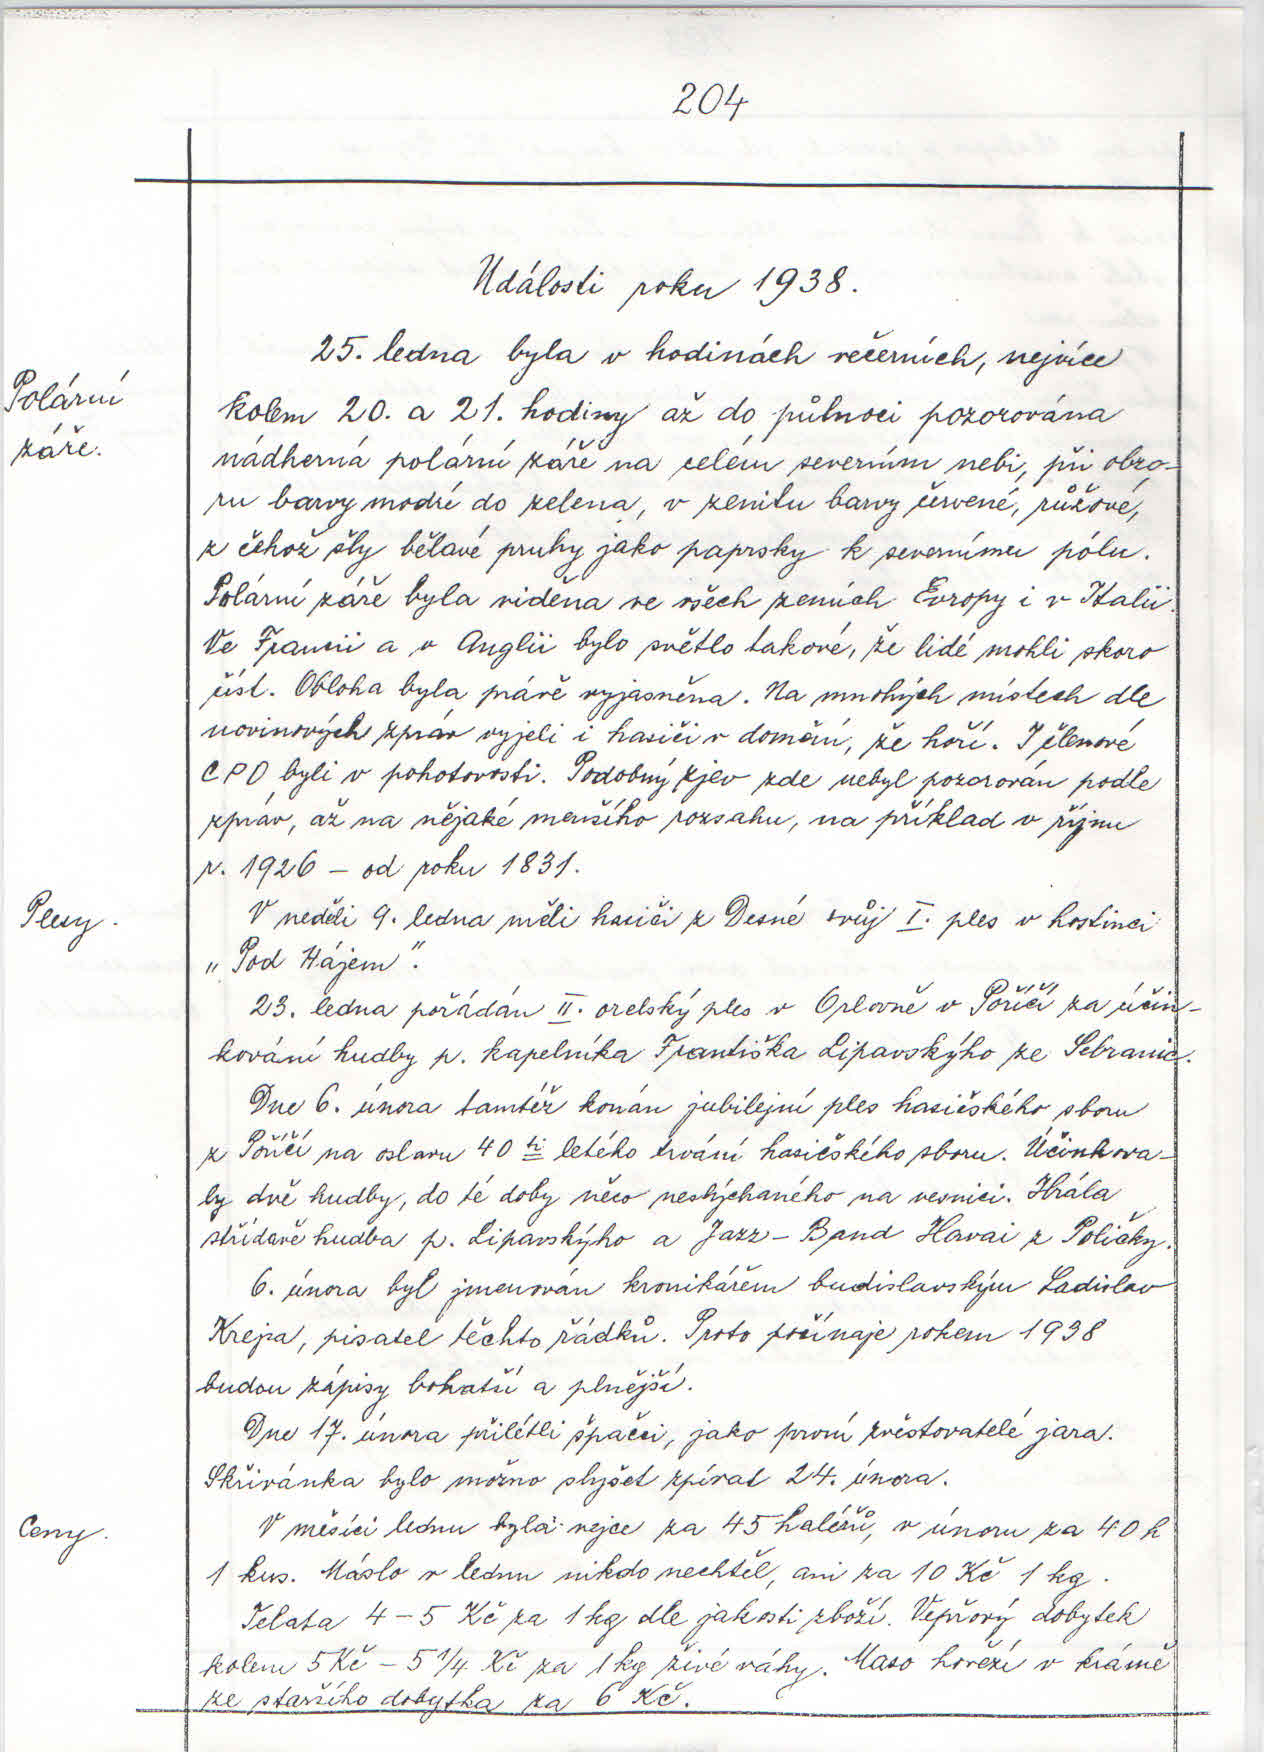 204
Události roku 1938.
25. ledna byla v hodinách večerních, nejvíce
Polární
záře.
kolem 20. a 21. hodiny až do půlnoci pozorována
nádherná polární záře na celém severním nebi, při obzo-
ru barvy modré do zelena, v zenitu barvy červené, růžové,
z čehož šly bělavé pruhy jako paprsky k severnímu pólu.
Polární záře byla viděna ve všech zemích Evropy i v Italii.
Ve Francii a v Anglii bylo světlo takové, že lidé mohli skoro
číst. Obloha byla právě vyjasněna. Na mnohých místech dle
novinových zpráv vyjeli i hasiči v domění, že hoří. I členové
CPO byli v pohotovosti. Podobný zjev zde nebyl pozorován podle
zpráv, až na nějaké menšího rozsahu, na příklad v říjnu
r. 1926 – od roku 1831.
Plesy.
V neděli 9. ledna měli hasiči z Desné svůj I. ples v hostinci
„Pod Hájem".
23. ledna pořádán II. orelský ples v Orlovně v Poříčí za účin-
kování hudby p. kapelníka Františka Lipavskýho ze Sebranic.
Dne 6. února tamtéž konán jubilejní ples hasičského sboru
z Poříčí na oslavu 40 ti letého trvání hasičského sboru. Účinkova-
ly dvě hudby, do té doby něco neslýchaného na vesnici. Hrála
střídavě hudba p. Lipavskýho a Jazz-Band Havai z Poličky.
6. února byl jmenován kronikářem budislavským Ladislav
Krejsa, pisatel těchto řádků. Proto počínaje rokem 1938
budou zápisy bohatší a plnější.
Dne 17. února přilétli špačci, jako první zvěstovatelé jara.
Skřivánka bylo možno slyšet zpívat 24. února.
Ceny.
V měsíci lednu byla vejce za 45 haléřů, v únoru za 40 h
1 kus. Máslo v lednu nikdo nechtěl, ani za 10 Kč 1 kg.
Telata 4 – 5 Kč za 1 kg dle jakosti zboží. Vepřový dobytek
kolem 5 Kč – 5 1/4 Kč za 1 kg živé váhy. Maso hovězí v krámě
ze staršího dobytka za 6 Kč.